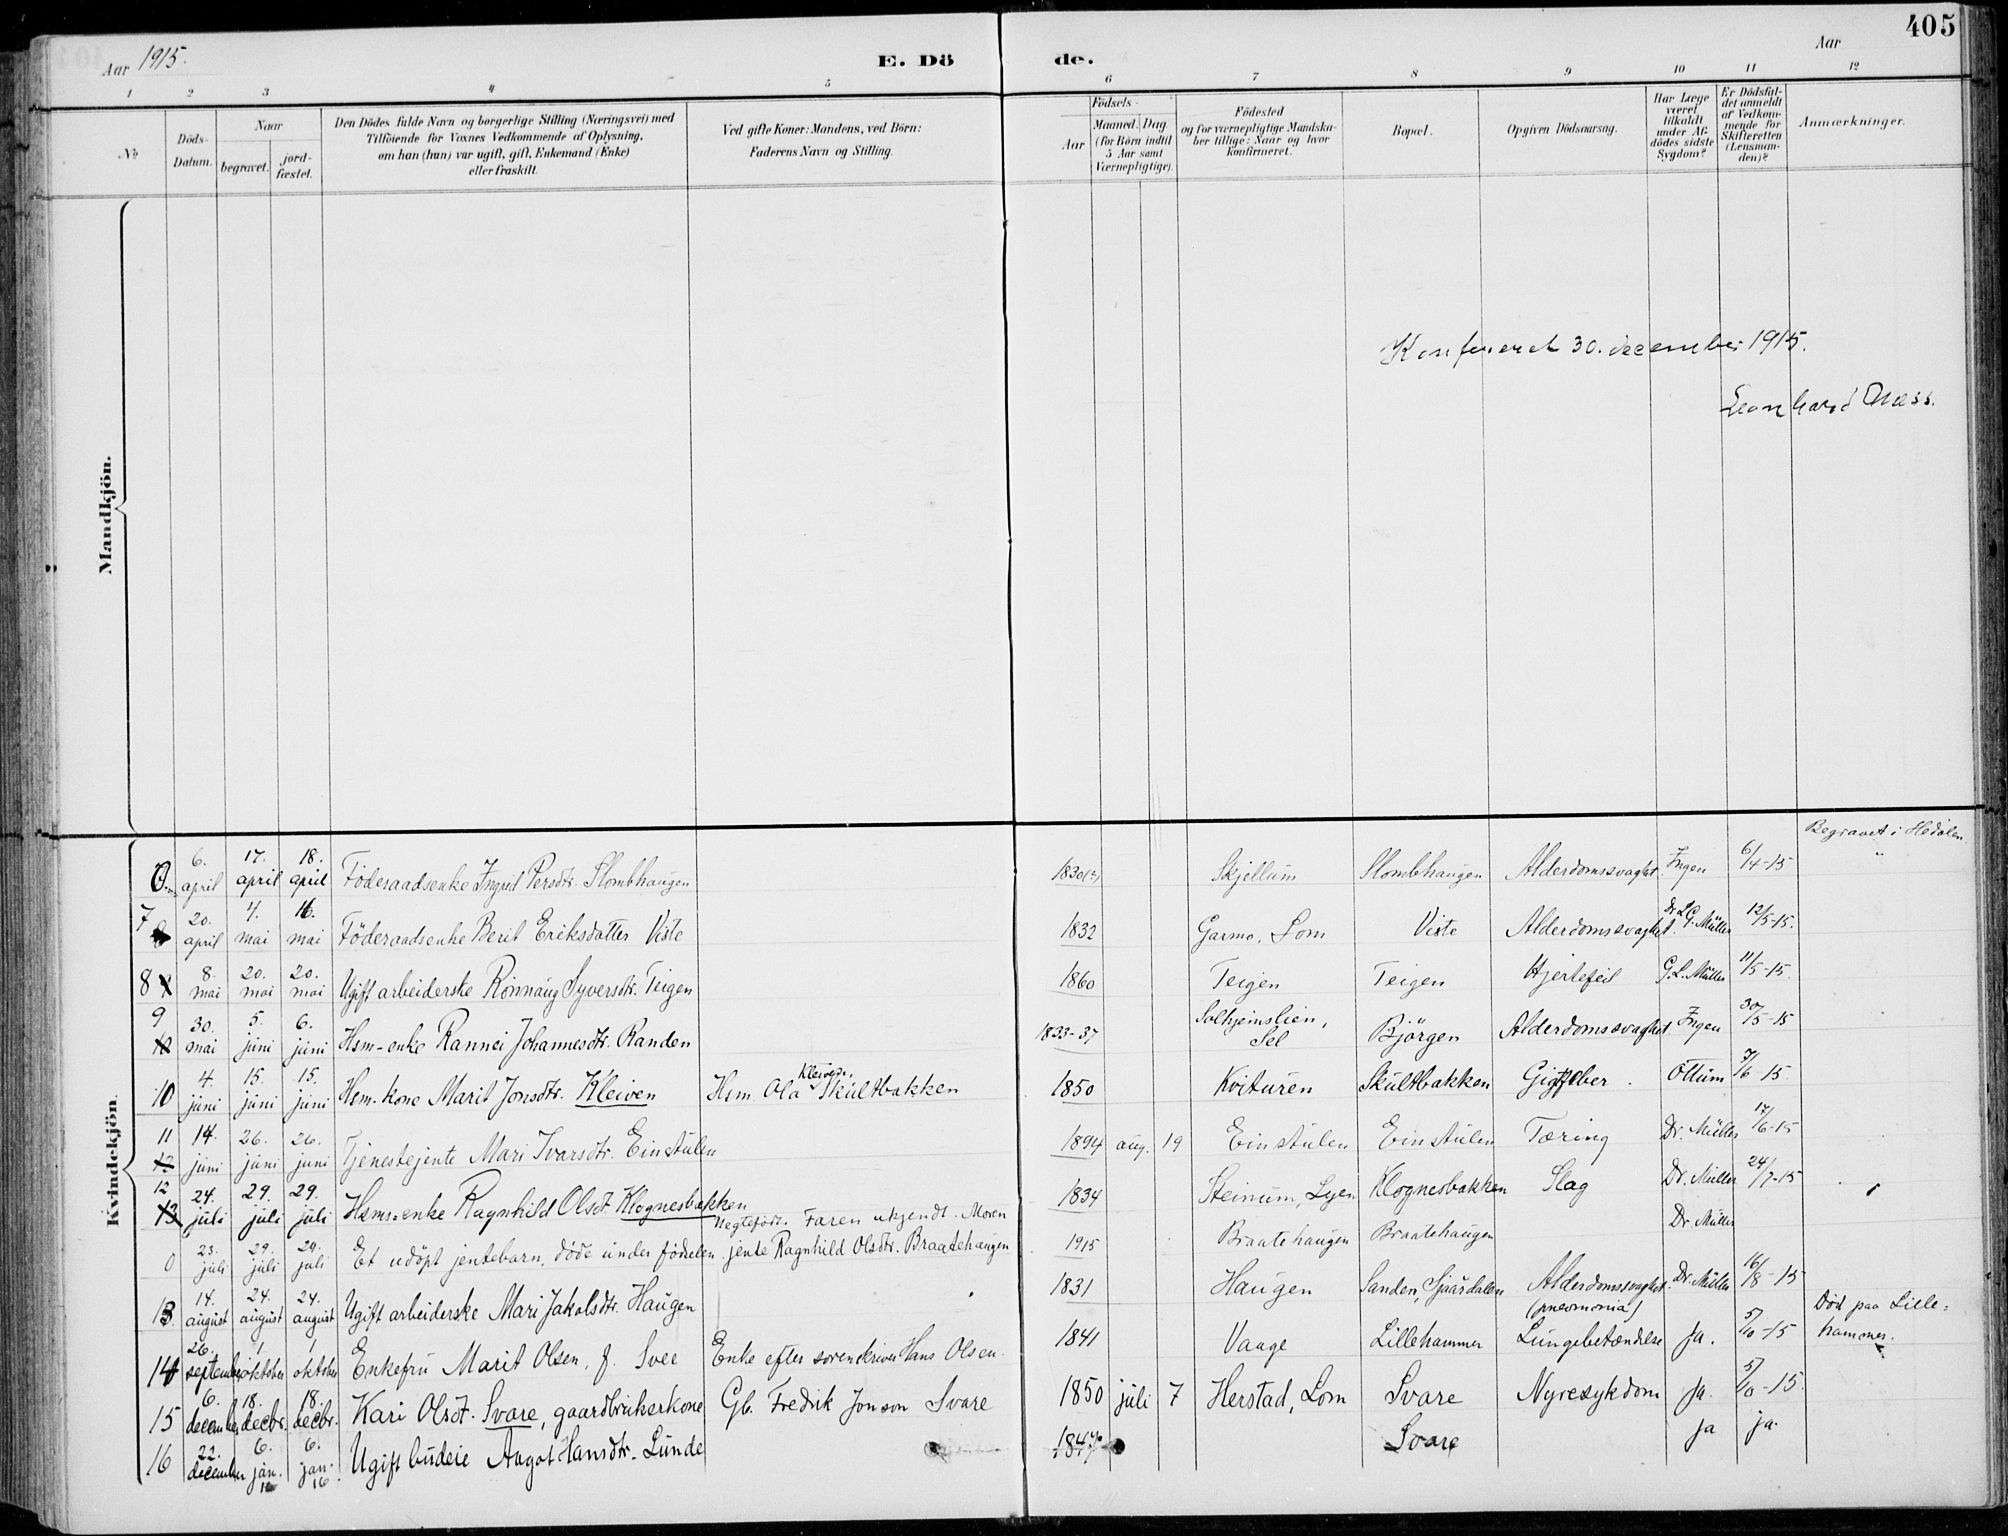 405
Aar 1915.
E. Dö de.
Aar
1 2 3 4 5 6 7 8 9 10 11 12
No
Döds-Datum.
Naar
begravet.
jord-fæstet.
Den Dödes fulde Navn og borgerlige Stilling (Næringsvei) med
Tilföiende for Voxnes Vedkommende af Oplysning,
om han (hun) var ugift, gift, Enkemand (Enke)
eller fraskilt.
Ved gifte Koner: Mandens, ved Börn:
Faderens Navn og Stilling.
Födsels-
Aar
Maaned. Dag
(for Börn indtil
5 Aar samt
Værnepligtige).
Födested
og for værnepligtige Mandska-
ber tillige: Naar og hvor
konfirmeret.
Bopæl.
Opgiven Dödsaarsag.
Har Læge
været
tilkaldt
under Af-
dödes sidste
Sygdom?
Er Dödsfal-
det anmeldt
af Vedkom-
mende for
Skifteretten
(Lensman-
den)?
Anmærkninger.
Mandkjön.
Konfereret 30. december 1915.
Leonhard Næss.
Kvindekjön.
Begravet i Hedalen
0 6. april 17. april 18. april Föderaadsenke Ingrid Persdtr. Slombhaugen 1830(?) Skjellum Slombhaugen Alderdomssvaghet Ingen 6/4-15
7 20. april 4. mai 16. mai Föderaadsenke Berit Eriksdatter Viste 1832 Garmo, Lom Viste Alderdomssvaghet. Dr. L.G. Müller 12/5-15.
8 8. mai 20. mai 20. mai Ugift arbeiderske Rönnaug Syversdtr. Teigen 1860 Teigen Teigen Hjertefeil G. L. Müller 11/5-15.
9 30. mai 5. juni 6. juni Hsm-enke Rannei Johannesdtr. Randen 1833-37 Solhjemslien, Sel Björgen Alderdomssvaghet Ingen 30/5-15
10 4. juni 15. juni 15. juni Hsm-kone Marit Jonsdtr. Kleiven Hsm. Ola Kleiven Skultbakken 1850 Kvituren Skultbakken Gigtfeber. Ottum 7/6-15
11 14. juni 26. juni 26. juni Tjenestejente Mari Ivarsdtr. Einstulen 1894 aug. 19 Einstulen Einstulen Tæring Dr. Müller 17/6-15
12 24. juli 29. juli 29. juli Hsms-enke Ragnhild Olsdt. Klognesbakken 1834 Steinum, Lyen Klognesbakken Slag Dr. Müller 24/7-15
0 23. juli 29. juli 29. juli Et udöpt jentebarn, döde under födselen. Uegtefödt. Faren ukjendt. Moren jente Ragnhild Olsdtr. Braatehaugen 1915 Braatehaugen Braatehaugen Dr. Müller
13. 14. august 24. august 24. august Ugift arbeiderske Mari Jakobsdtr. Haugen 1831 Haugen Sanden, Sjaardalen Alderdomssvaghet. Dr. Müller 16/8-15
14 26. september 1 oktober 1 oktober Enkefru Marit Olsen, f. Svee Enke efter sorenskriver Hans Olsen. 1841 Vaage Lillehammer (pneomonia) Lungebetændelse Ja. 5/10-15 Död paa Lille-hammer.
15 6. december 18. decbr. 18. decbr. Kari Olsdt. Svare, gaardbrukerkone Gb. Fredrik Jonson Svare 1850 juli 7 Herstad, Lom Svare Nyresykdom Ja. 5/10-15.
16 22. december 6. jan. 16 6. jan. 16 Ugift budeie Augot Hansdtr. Lunde 1847 Svare ja ja.